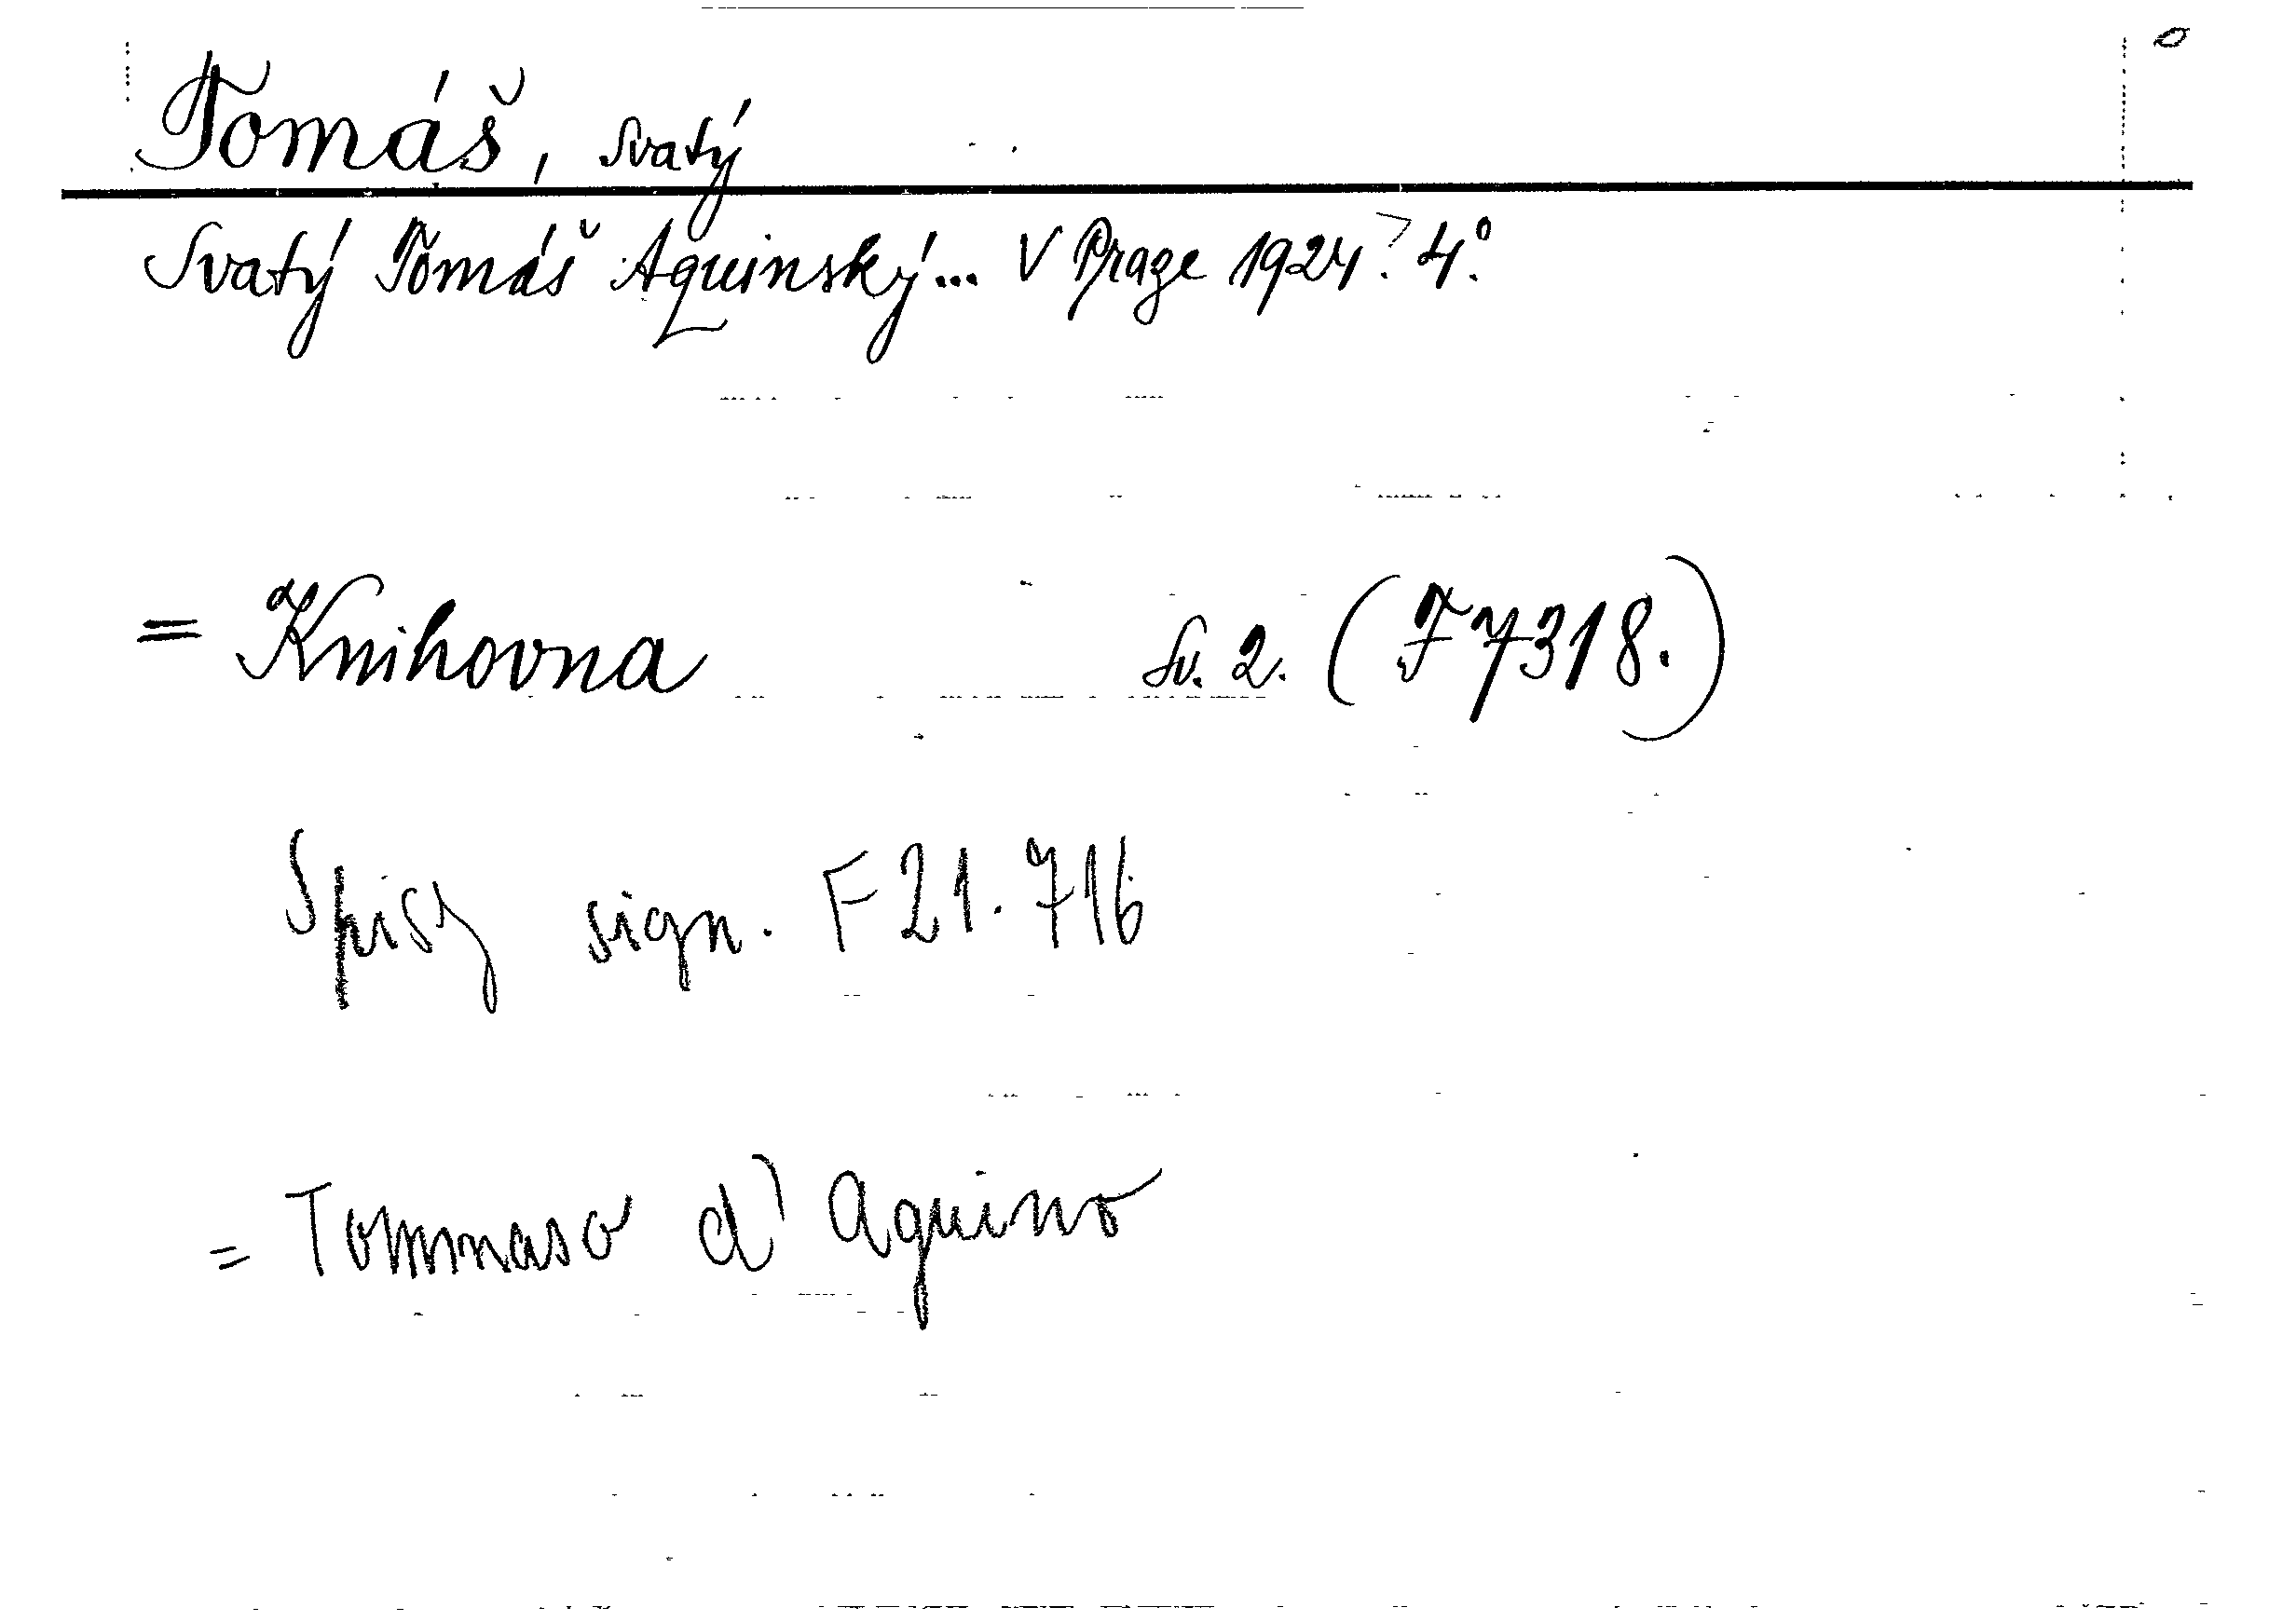 Tomáš, svatý
Svatý Tomáš Aquinský... V Praze 1924? 4°.
= Knihovna sv. 2. (F 7318.)
Spisy sign. F 21.716
= Tommaso d'Aquino